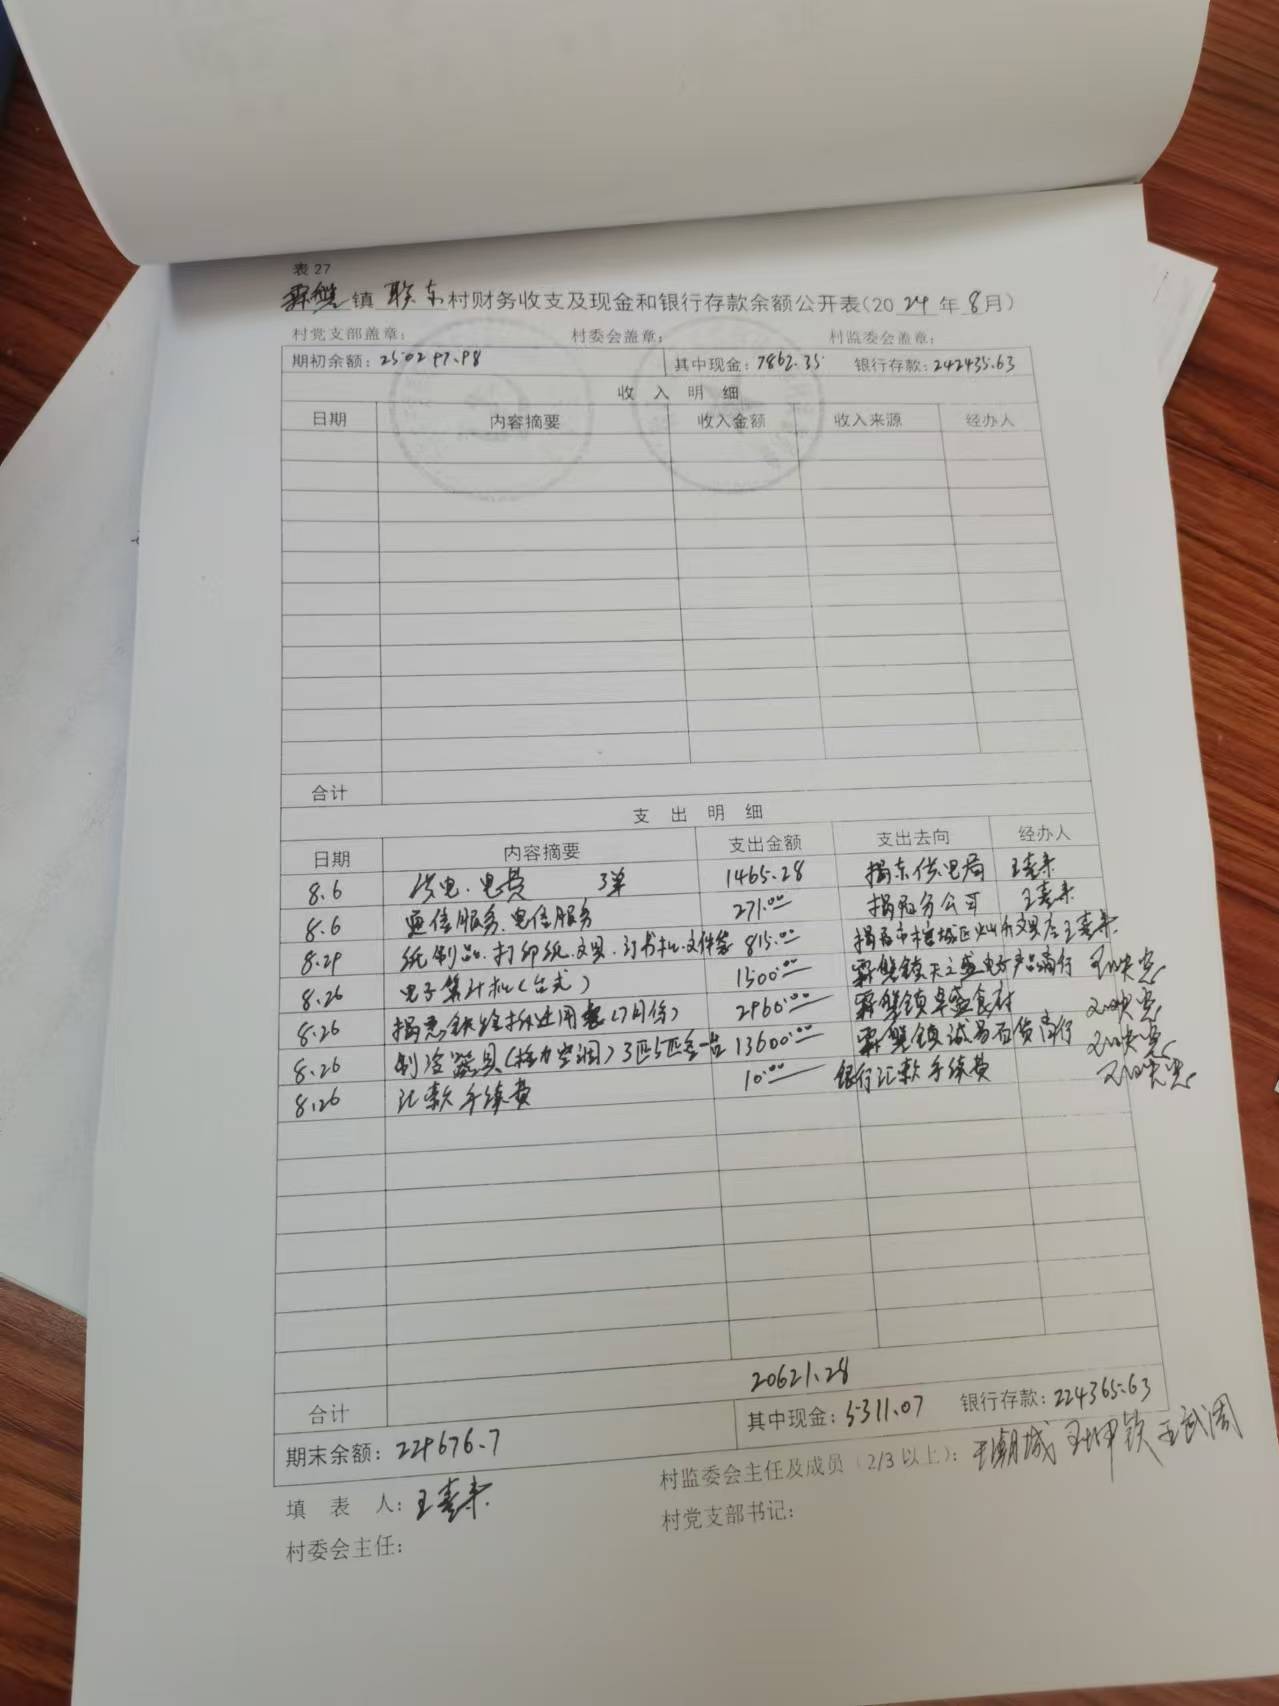 表 27
霖磐 镇 联东 村财务收支及现金和银行存款余额公开表(20 24 年 8 月)
村党支部盖章: 村委会盖章: 村监委会盖章:
期初余额: 250297.98 其中现金: 7862.35 银行存款: 242435.63
收入明细
日期 内容摘要 收入金额 收入来源 经办人
合计
支出明细
日期 内容摘要 支出金额 支出去向 经办人
8.6 供电.电费 3单 1465.28 揭东供电局 王喜来
8.6 通信服务.电信服务 271.00 揭阳分公司 王喜来
8.29 纸制品.打印纸.文具.订书机.文件袋 815.00 揭阳市榕城区 文具店 王喜来
8.26 电子算计机(台式) 1500.00 霖磐镇天之盛电子产品商行
8.26 揭惠铁路 用餐(7月份) 2960.00 霖磐镇卓盛食材
8.26 制冷器具(格力空调)3匹5匹各一台 13600.00 霖磐镇诚易百货商行
8.26 汇款手续费 10.00 银行汇款手续费
合计 20621.28
期末余额: 229676.7 其中现金: 5311.07 银行存款: 224365.63
填 表 人: 王喜来 村监委会主任及成员(2/3 以上): 王潮城 王坤钦 王武周
村委会主任: 村党支部书记: